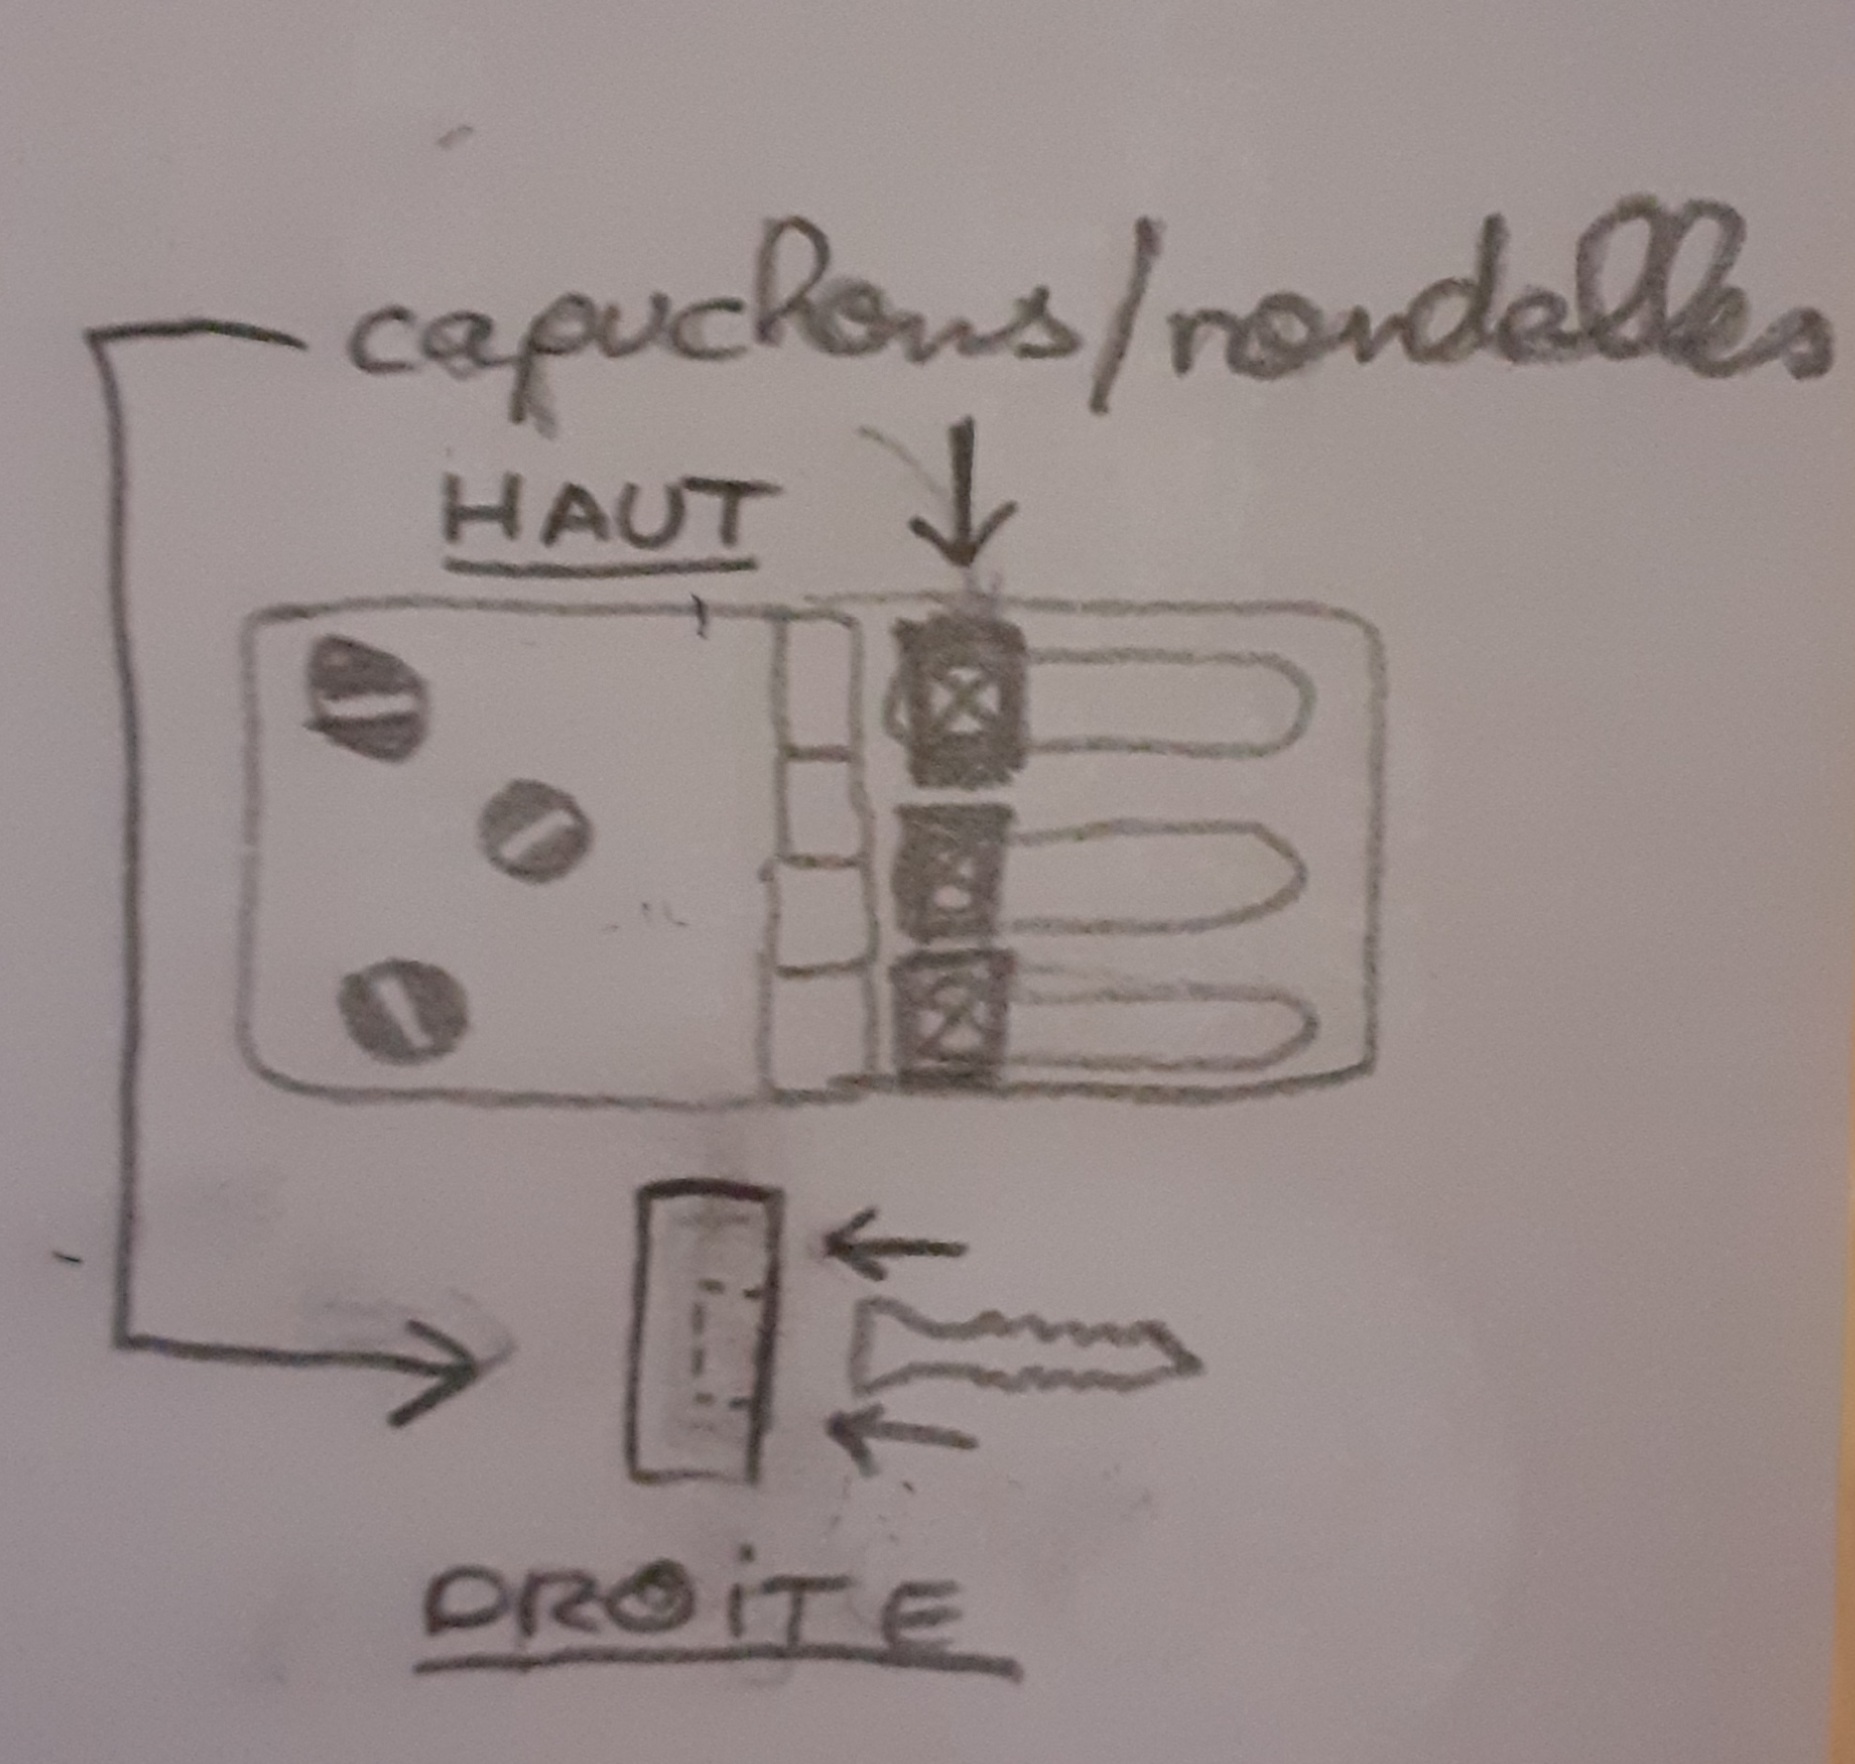 capuchons/rondelles
HAUT
DROiTE